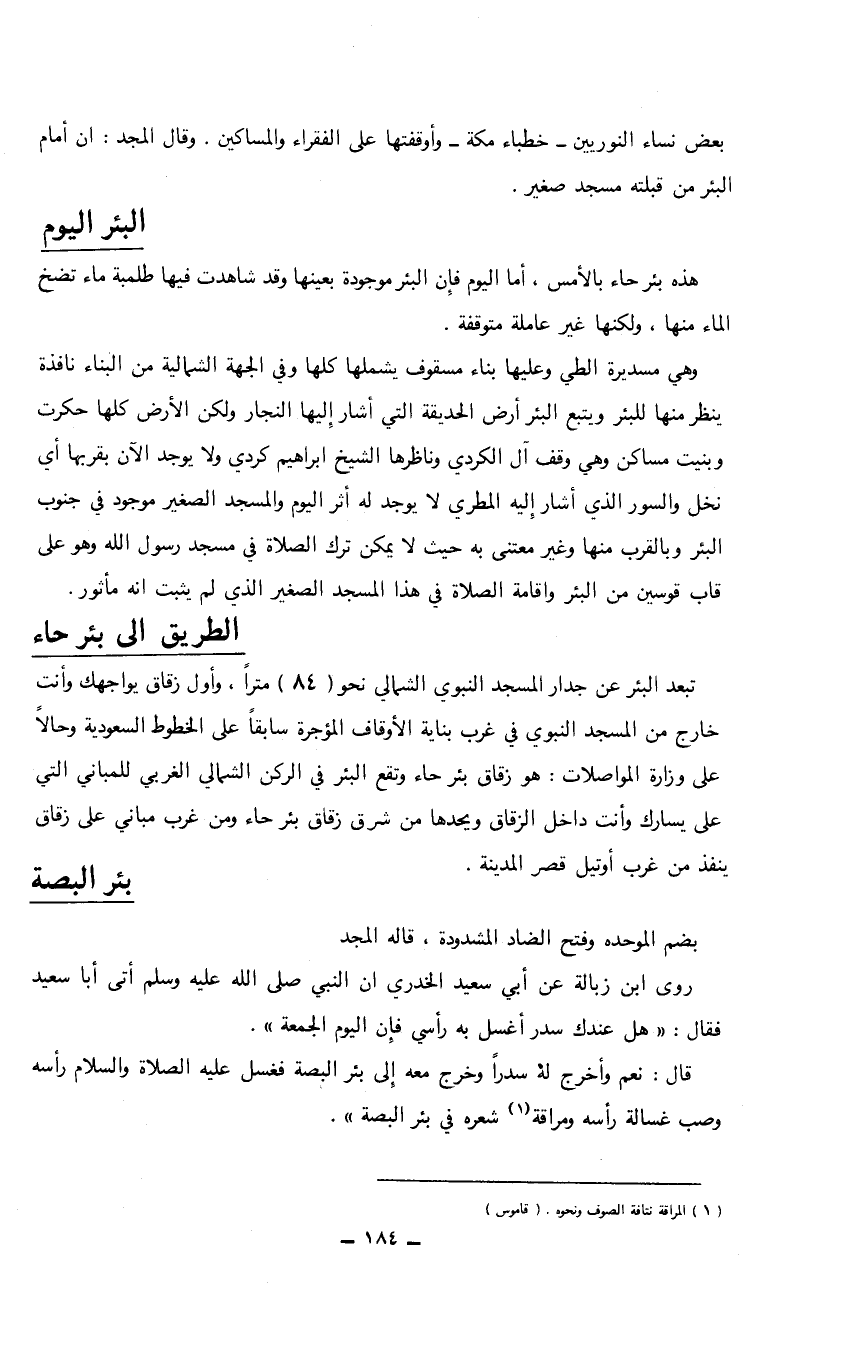 بعض نساء النوريين ـ خطباء مكة ـ وأوقفتها على الفقراء والمساكين . وقال المجد : ان أمام
البئر من قبلته مسجد صغير .
البئر اليوم
هذه بئر حاء بالأمس ، أما اليوم فإن البئر موجودة بعينها وقد شاهدت فيها طلمبة ماء تضخ
الماء منها ، ولكنها غير عاملة متوقفة .
وهي مسديرة الطي وعليها بناء مسقوف يشملها كلها وفي الجهة الشمالية من البناء نافذة
ينظر منها للبئر ويتبع البئر أرض الحديقة التي أشار إليها النجار ولكن الأرض كلها حكرت
وبنيت مساكن وهي وقف آل الكردي وناظرها الشيخ ابراهيم كردي ولا يوجد الآن بقربها أي
نخل والسور الذي أشار إليه المطري لا يوجد له أثر اليوم والمسجد الصغير موجود في جنوب
البئر وبالقرب منها وغير معتنى به حيث لا يمكن ترك الصلاة في مسجد رسول الله وهو على
قاب قوسين من البئر واقامة الصلاة في هذا المسجد الصغير الذي لم يثبت انه مأثور .
الطريق الى بئر حاء
تبعد البئر عن جدار المسجد النبوي الشمالي نحو ( ٨٤ ) متراً ، وأول زقاق يواجهك وأنت
خارج من المسجد النبوي في غرب بناية الأوقاف المؤجرة سابقاً على الخطوط السعودية وحالاً
على وزارة المواصلات : هو زقاق بئر حاء وتقع البئر في الركن الشمالي الغربي للمباني التي
على يسارك وأنت داخل الزقاق ويحدها من شرق زقاق بئر حاء ومن غرب مباني على زقاق
ينفذ من غرب أوتيل قصر المدينة .
بئر البصة
بضم الموحده وفتح الضاد المشدودة ، قاله المجد
روى ابن زبالة عن أبي سعيد الخدري ان النبي صلى الله عليه وسلم أتى أبا سعيد
فقال : « هل عندك سدر أغسل به رأسي فإن اليوم الجمعة » .
قال : نعم وأخرج له سدراً وخرج معه إلى بئر البصة فغسل عليه الصلاة والسلام رأسه
وصب غسالة رأسه ومراقة(١) شعره في بئر البصة » .
( ١ ) المراقة نتافة الصوف ونحوه . ( قاموس )
ـ ١٨٤ ـ